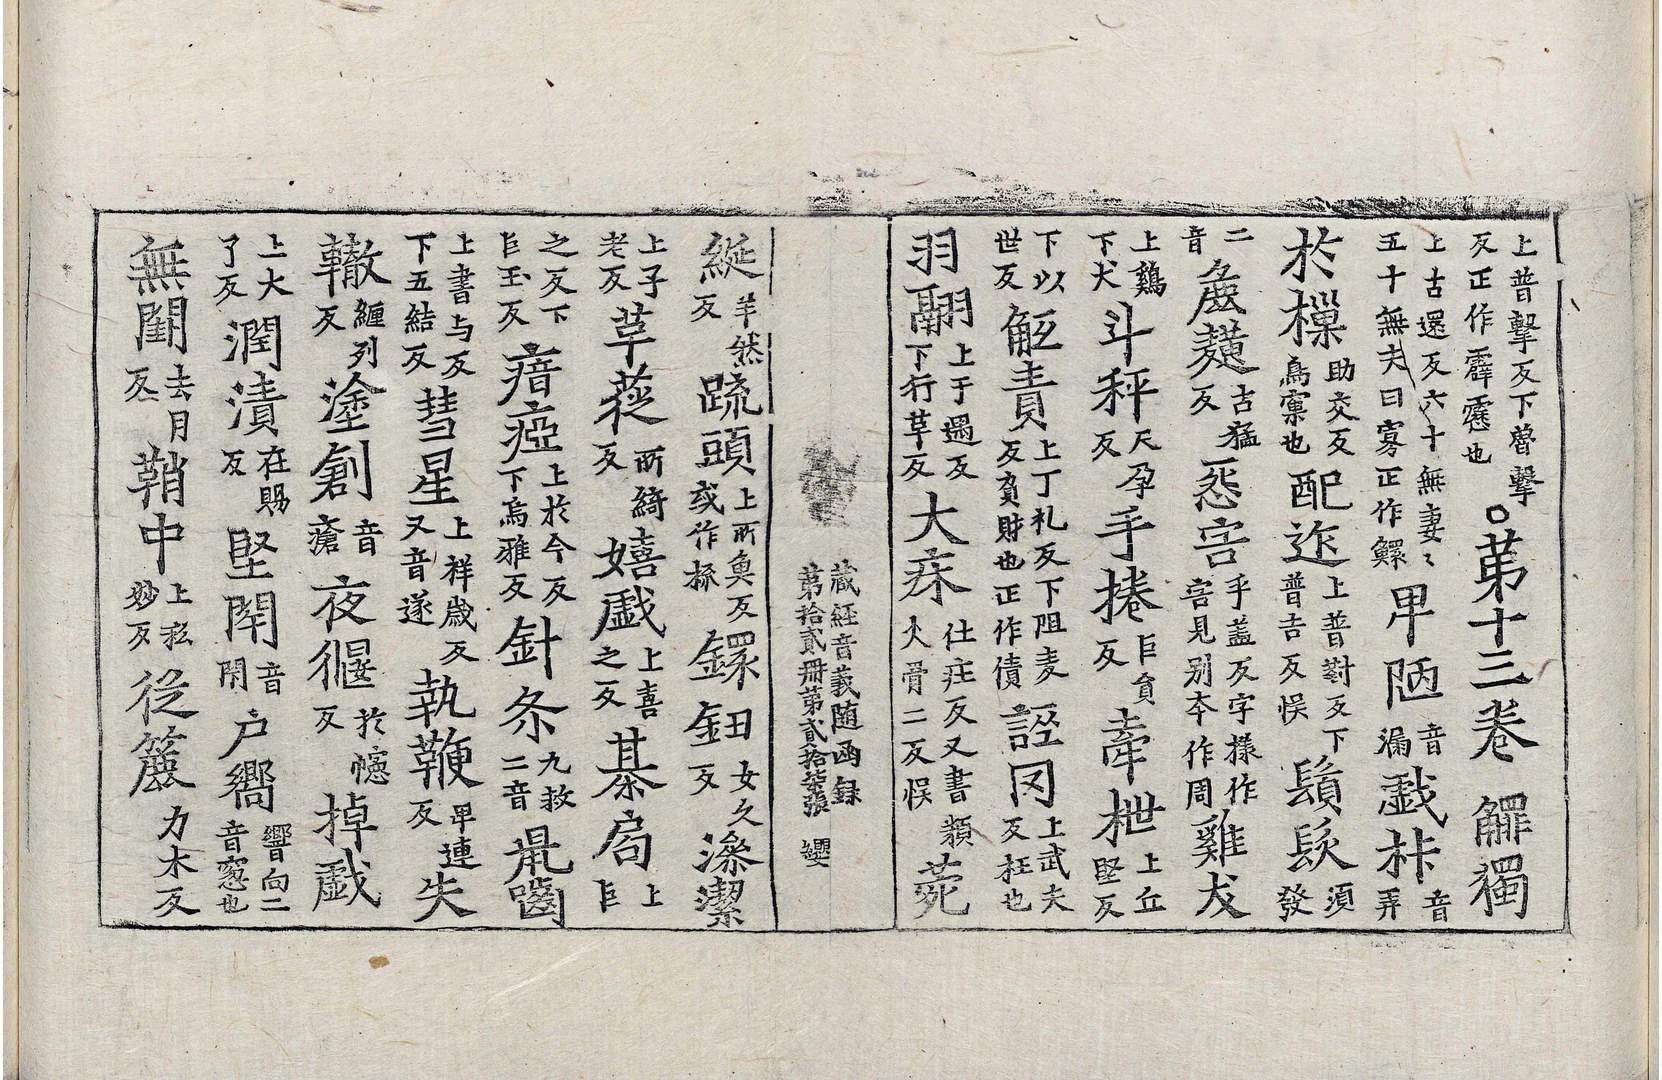 上普擊反下普擊
反正作霹靂也
○第十三卷
觶獨
上古還反六十無妻〻
五十無夫曰寡正作鰥
卑陋
音
漏
戲栤
音
弄
於樔
助交反
鳥窠也
配迮
上普對反下
普吉反悮
鬚髮
須
發
二
音
麁䵃
古猛
反
惡害
乎蓋反字樣作
害見別本作周
雞犬
上鷄
下犬
斗秤
尺孕
反
手捲
巨負
反
牽枻
上丘
堅反
下以
世反
觝責
上丁礼反下阻麦
反貟財也正作債
誙罔
上武夫
反枉也
羽翮
上于遇反
下行革反
大床
仕庄反又書
大骨二反悮
類薨
綖
羊然
反
䟽頭
上所魚反
或作梳
鐶鈕
田女久
反
滲潔
上子
老反
草蓰
所綺
反
嬉戲
上喜
之反
棊局
上
巨
之反下
巨玉反
瘖瘂
上於今反
下烏雅反
針灸
九救
二音
鼡嚙
上書与反
下五結反
彗星
上祥歲反
又音遂
執鞭
卑連
反
失
轍
纏列
反
塗創
音
瘡
夜偃
於幰
反
掉戲
上大
了反
潤漬
在賜
反
堅閇
音
閉
户嚮
響向二
音窓也
無闕
去月
反
鞘中
上私
妙反
從簏
力木反
藏経音義随函録
第拾貳冊第貳拾柒張
纓